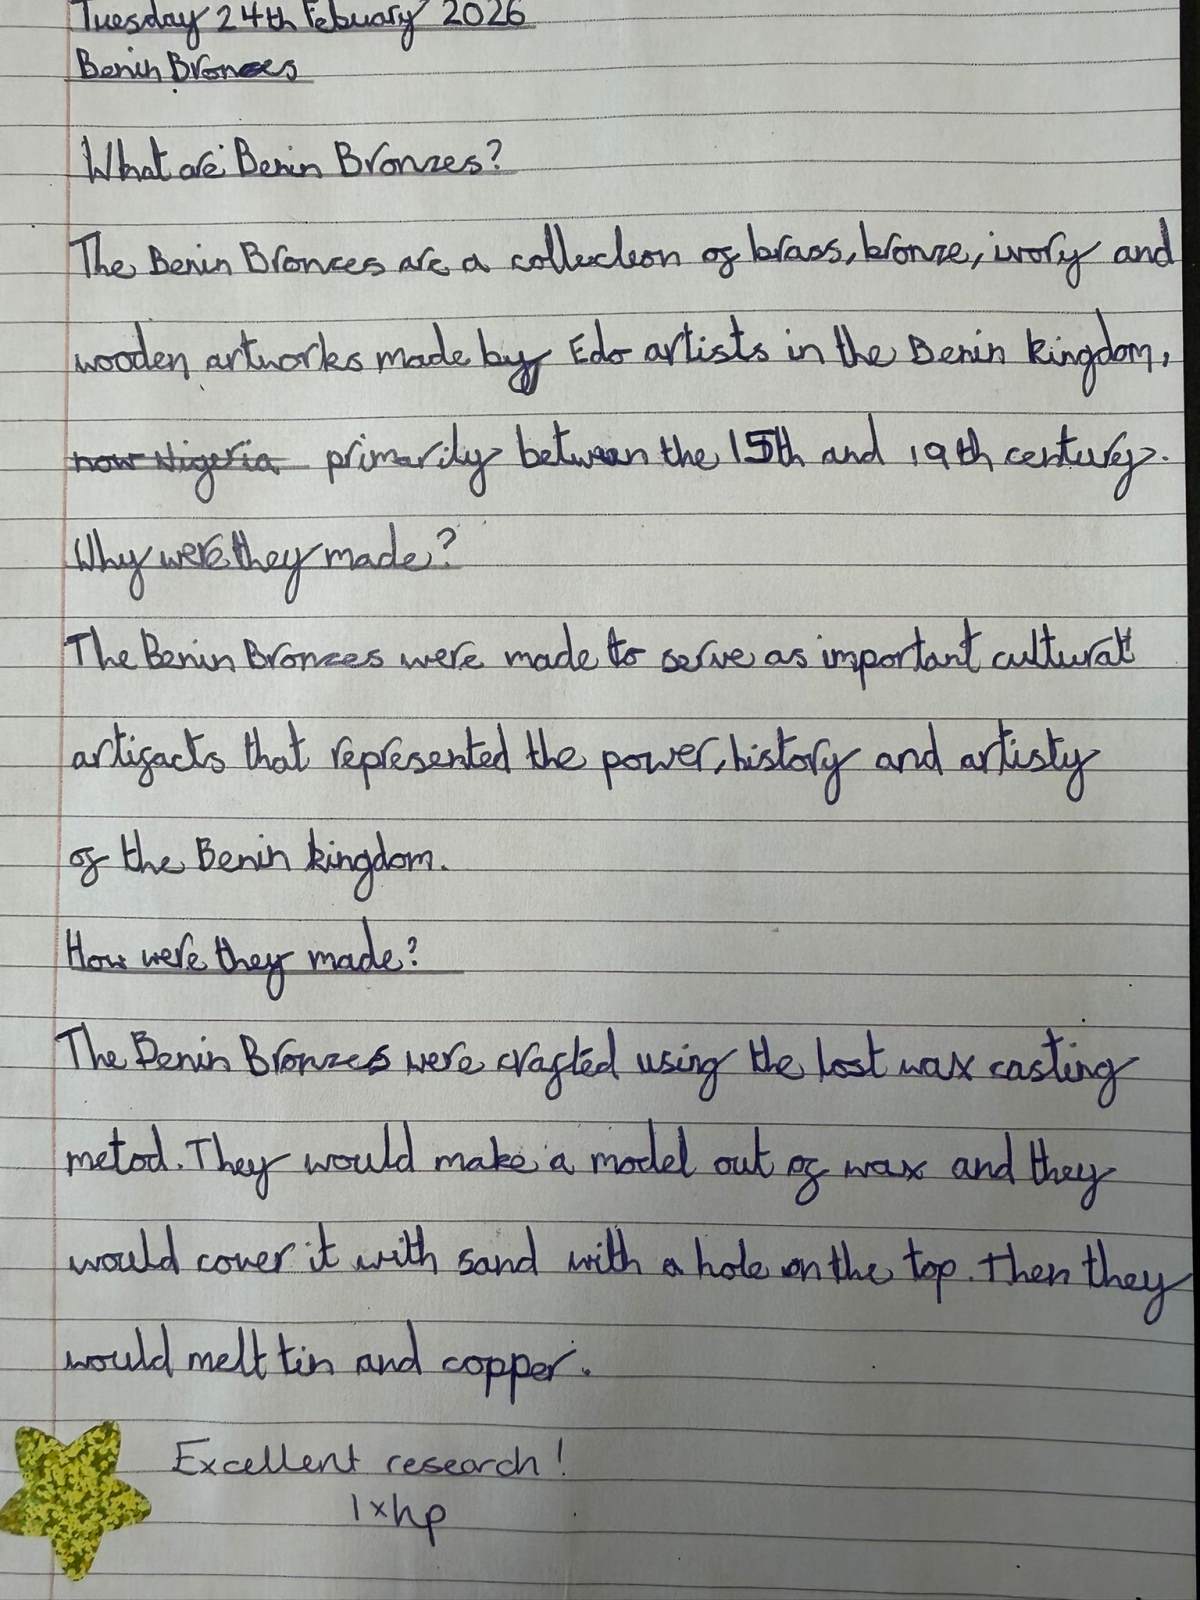 Tuesday 24th Febuary 2026
Benin Bronzes
What are Benin Bronzes?
The Benin Bronzes are a collection of brass, bronze, ivory and
wooden artworks made by Edo artists in the Benin kingdom,
now Nigeria primarily between the 15th and 19th century.
Why were they made?
The Benin Bronzes were made to serve as important cultural
artifacts that represented the power, history and artisty
of the Benin kingdom.
How were they made?
The Benin Bronzes were crafted using the lost wax casting
metod. They would make a model out of wax and they
would cover it with sand with a hole on the top. Then they
would melt tin and copper.
Excellent research!
1xhp